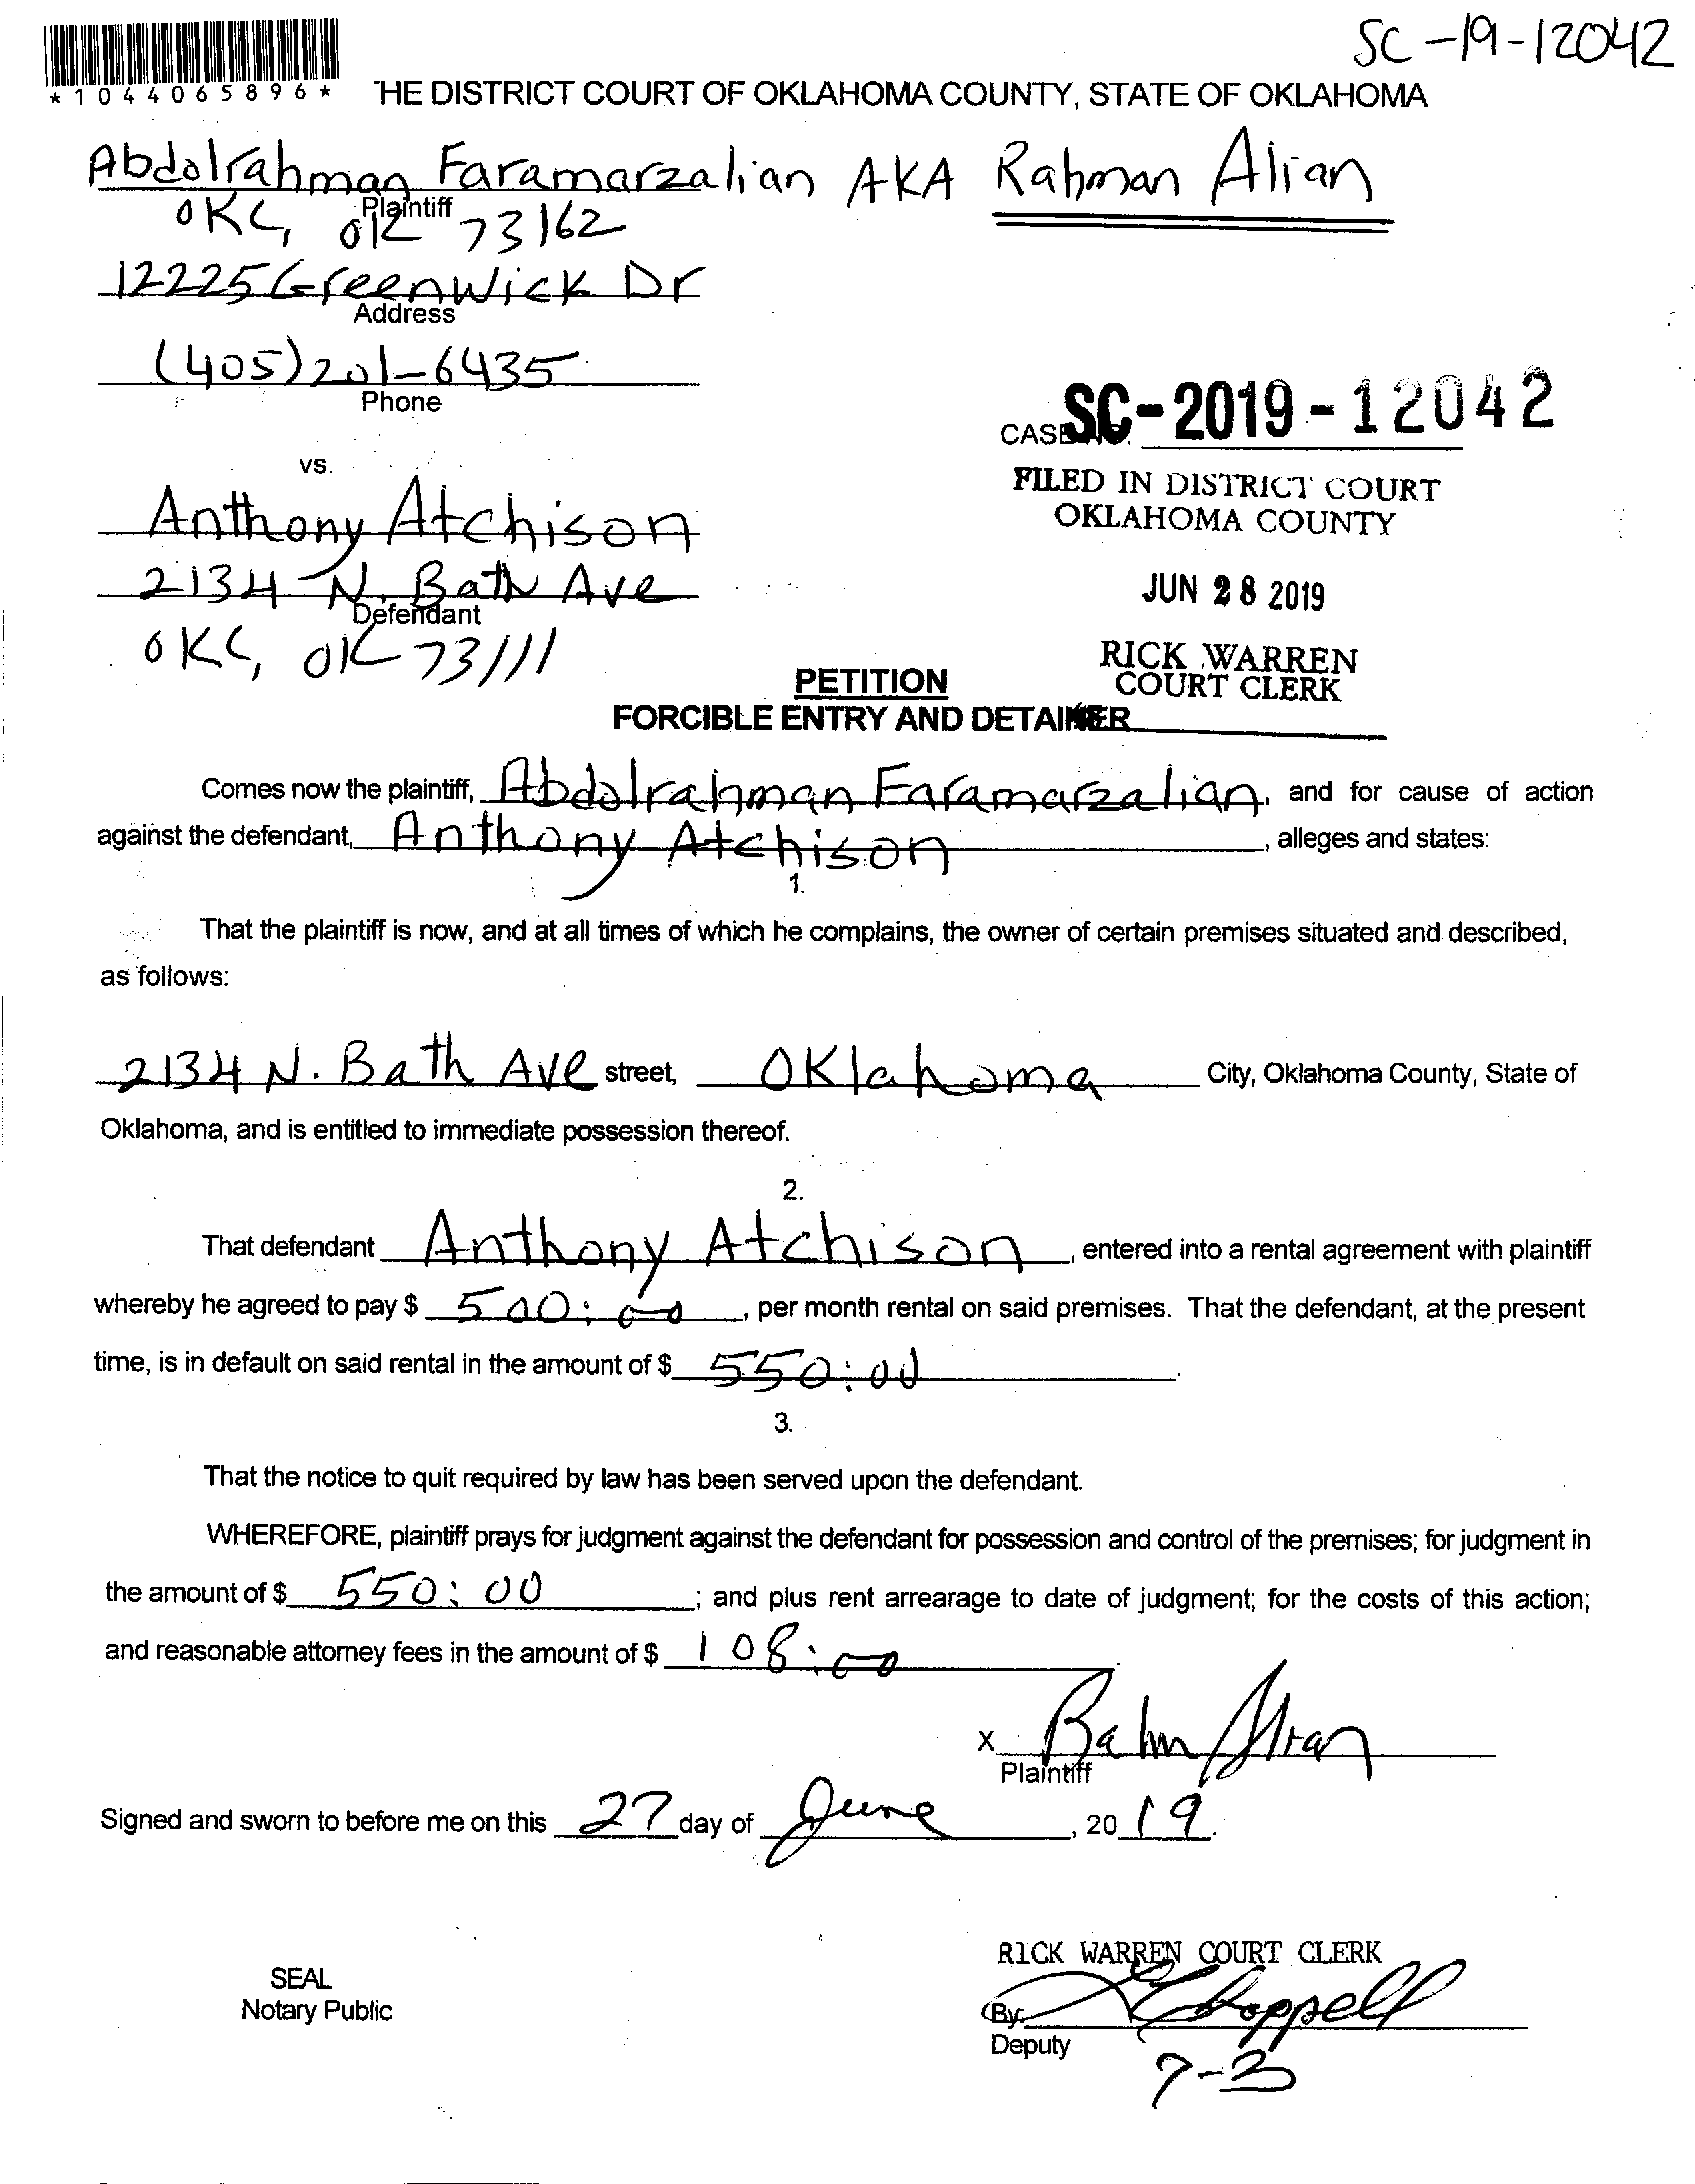 SC-19-12042
*1044065896*
THE DISTRICT COURT OF OKLAHOMA COUNTY, STATE OF OKLAHOMA
Abdolrahman Faramarzalian AKA Rahman Alian
Plaintiff
OKC, OK 73162
12225 Greenwick Dr
Address
(405)201-6435
Phone
CASE NO. SC-2019-12042
vs.
FILED IN DISTRICT COURT
OKLAHOMA COUNTY
Anthony Atchison
2134 N. Bath Ave
Defendant
OKC, OK 73111
JUN 28 2019
RICK WARREN
COURT CLERK
PETITION
FORCIBLE ENTRY AND DETAINER
Comes now the plaintiff, Abdolrahman Faramarzalian, and for cause of action
against the defendant, Anthony Atchison, alleges and states:
1.
That the plaintiff is now, and at all times of which he complains, the owner of certain premises situated and described,
as follows:
2134 N. Bath Ave street, Oklahoma City, Oklahoma County, State of
Oklahoma, and is entitled to immediate possession thereof.
2.
That defendant Anthony Atchison, entered into a rental agreement with plaintiff
whereby he agreed to pay $ 500:00, per month rental on said premises. That the defendant, at the present
time, is in default on said rental in the amount of $ 550:00.
3.
That the notice to quit required by law has been served upon the defendant.
WHEREFORE, plaintiff prays for judgment against the defendant for possession and control of the premises; for judgment in
the amount of $ 550:00; and plus rent arrearage to date of judgment; for the costs of this action;
and reasonable attorney fees in the amount of $ 108:00
X
Plaintiff
Signed and sworn to before me on this 27 day of June, 2019.
RICK WARREN COURT CLERK
SEAL
Notary Public
By:
Deputy
7-3